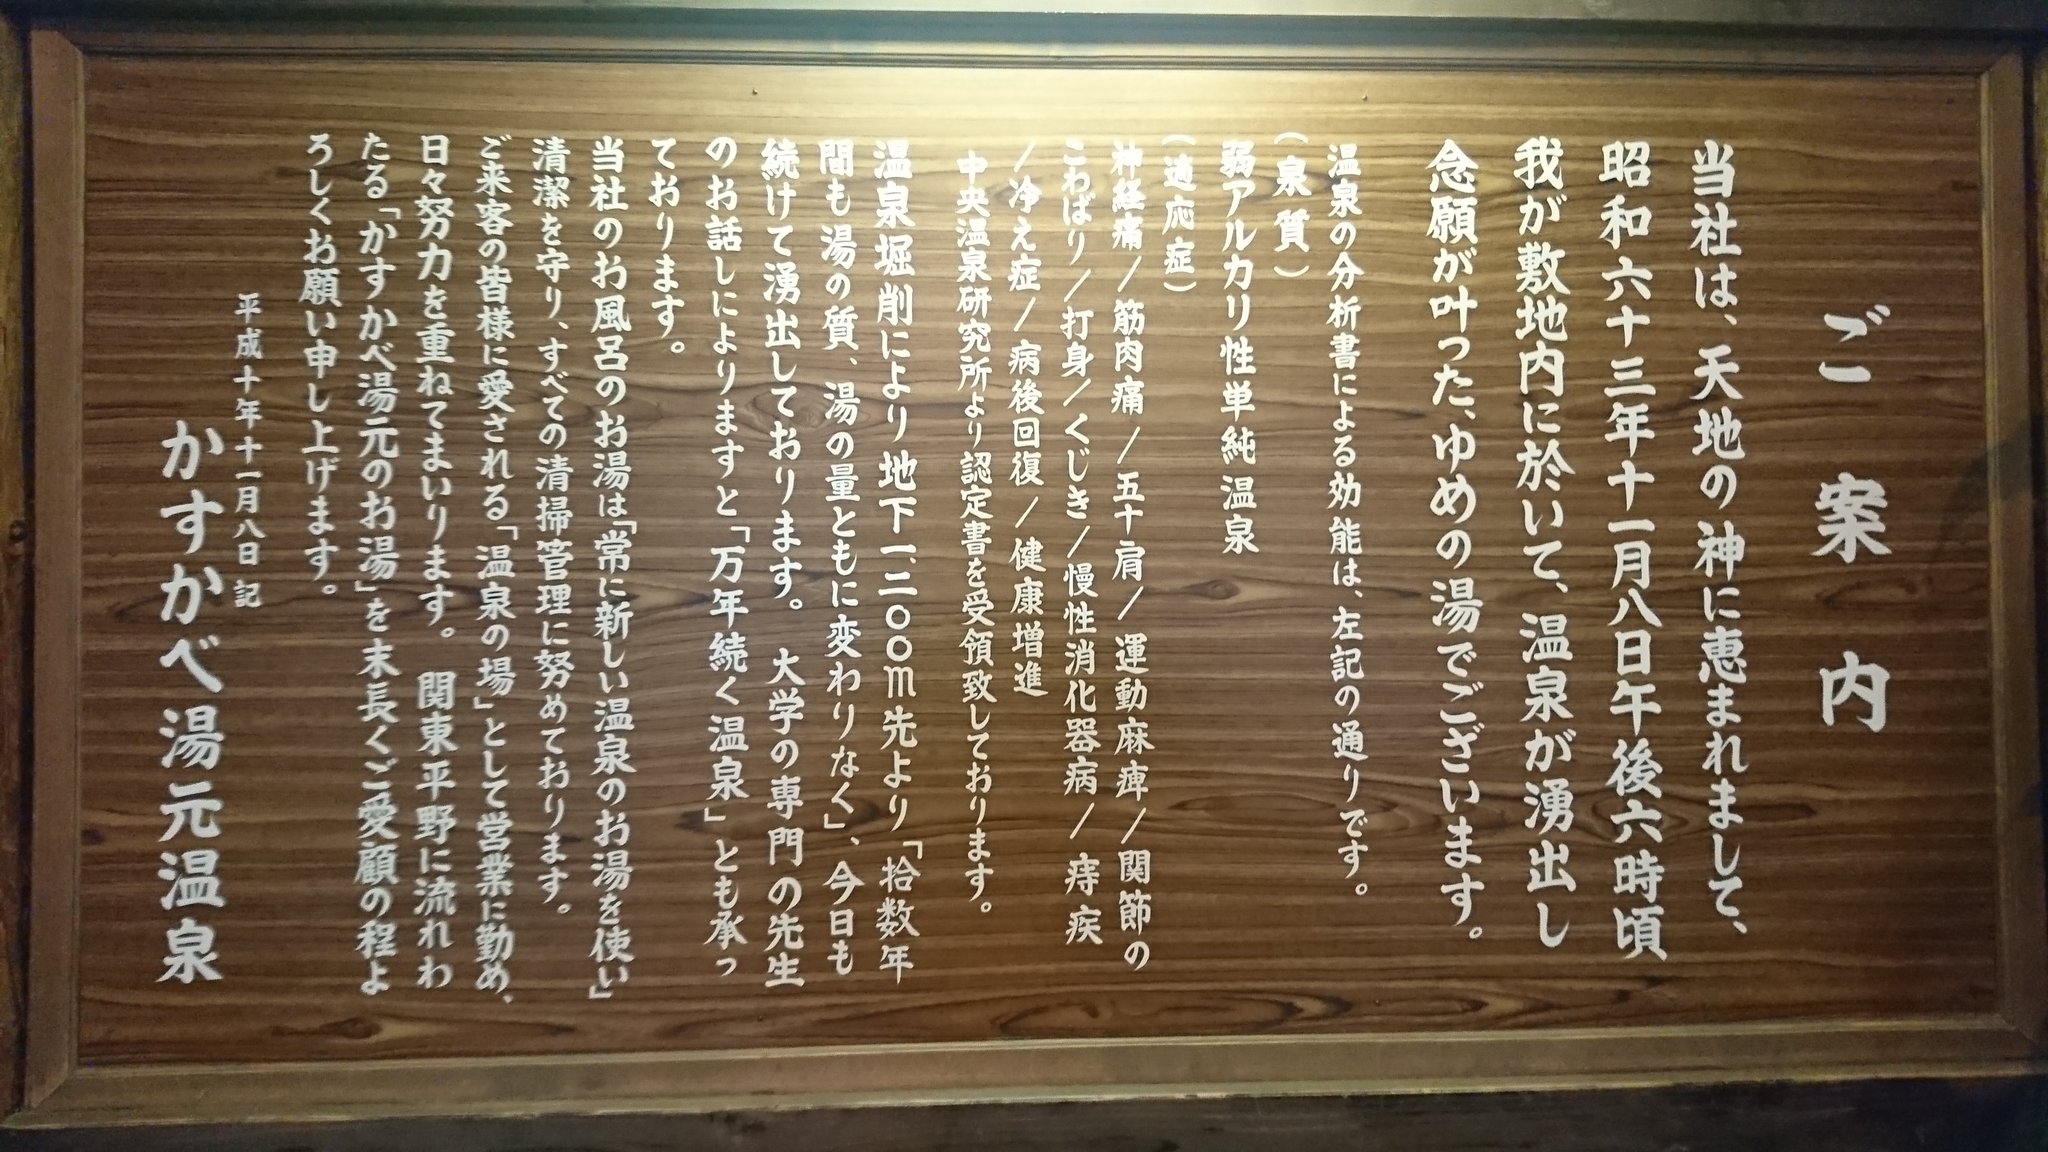 ご案内
当社は、天地の神に恵まれまして、
昭和六十三年十一月八日午後六時頃
我が敷地内に於いて、温泉が湧出し
念願が叶った、ゆめの湯でございます。
温泉の分析書による効能は、左記の通りです。
(泉質)
弱アルカリ性単純温泉
(適応症)
神経痛/筋肉痛/五十肩/運動麻痺/関節の
こわばり/打身/くじき/慢性消化器病/痔疾
/冷え症/病後回復/健康増進
中央温泉研究所より認定書を受領致しております。
温泉堀削により地下一、二〇〇m先より「拾数年
間も湯の質、湯の量ともに変わりなく」、今日も
続けて湧出しております。大学の専門の先生
のお話しによりますと「万年続く温泉」とも承っ
ております。
当社のお風呂のお湯は「常に新しい温泉のお湯を使い」
清潔を守り、すべての清掃管理に努めております。
ご来客の皆様に愛される「温泉の場」として営業に勤め、
日々努力を重ねてまいります。関東平野に流れわ
たる「かすかべ湯元のお湯」を末長くご愛顧の程よ
ろしくお願い申し上げます。
平成十年十一月八日記
かすかべ湯元温泉